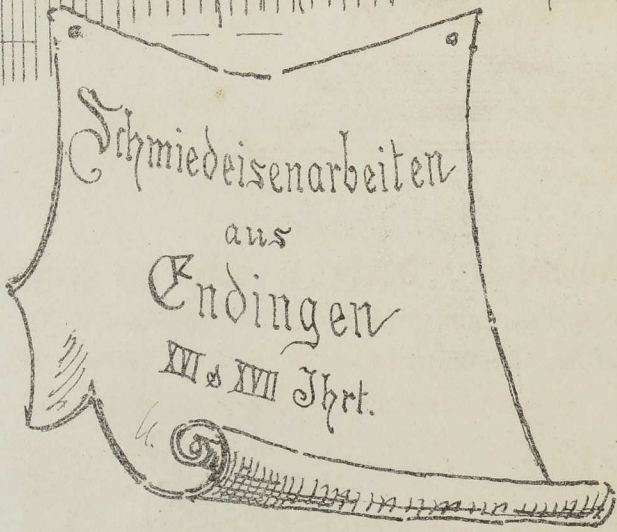 Schmiedeisenarbeiten
aus
Endingen
XVI & XVII Jhrt.